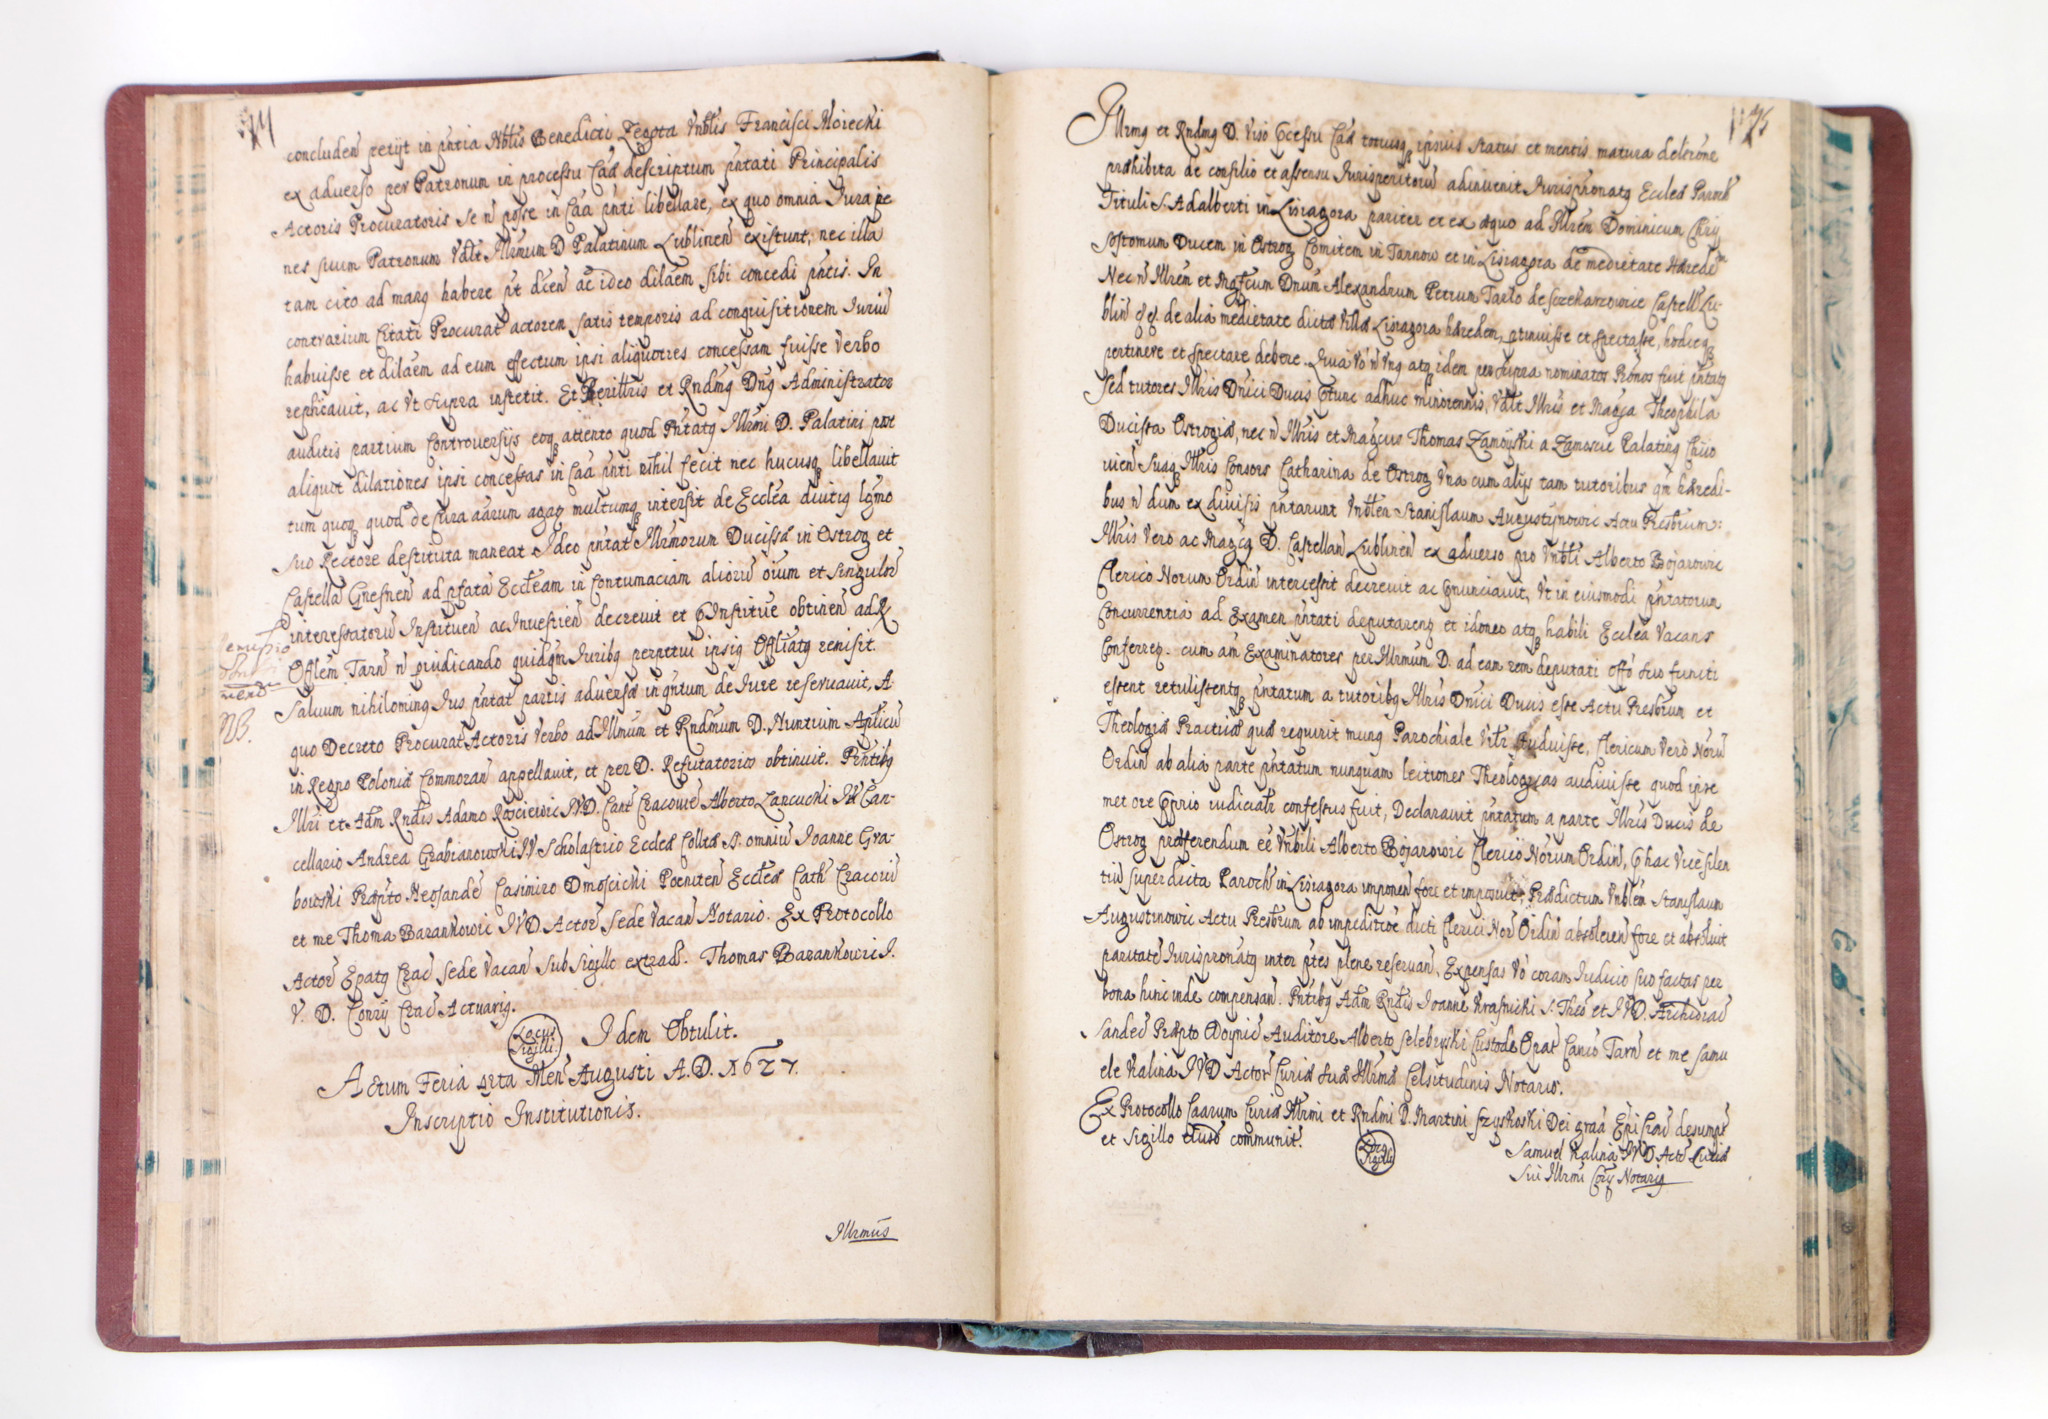 concluden petijt in pntia Nblis Benedicti Zegota Vnblis Francisci Morecki
ex adverso per Patronum in processu Caæ descriptum pntati Principalis
Actoris Procuratoris se n posse in Caa pnti libellare, ex quo omnia Jura pe
nes suum Patronum Vdlt Illrmum D Palatinum Lublinen existunt, nec illa
tam cito ad manq habere pt dcen ac ideo dilaem sibi concedi pntis. In
contrarium Citati Procurat actorem satis temporis ad conquisitionem Juriu
habuisse et dilaem ad eum effectum ipsi aliquotres concessam fuisse Verbo
replicauit, ac Vt supra institit. Et Perillris et Rndmq Dnq Administrator
auditis partium Controversijs eoq attento quod Pntatq Illrmi D. Palatini post
aliquot dilationes ipsi concessas in Caa pnti nihil fecit nec hucusq libellauit
tum quoq quod de cura aarum agaq multumq intersit de Ecclea diutiq lgmo
suo Rectore destituta maneat Ideo pntat Illrmorum Ducissæ in Ostrog et
Castella Gnesnen ad pfata Eccleam in Contumaciam alioru oium et singulor
interessatoru Instituen ac Inuestien decreuit et Institue obtinen ad R
Offlem Tarn n piudicando quidqm Juribq perpetui ipsiq Offliatq remisit.
Saluum nihilominq Jus pntat partis aduersæ in qntum de Jure reseruauit, A
quo Decreto Procurat Actoris Verbo ad Illmum et Rndmum D. Nuntium Aplicu
in Regno Poloniæ Commoran appellauit, et per D. Refutatorios obtinuit. Pntibq
Illri et Adm Rndis Adamo Rosciewic IVD. Canc Cracouie Alberto Lancucki IV Can-
cellario Andrea Grabianowski IV Scholastico Ecclæ Colltæ S. omniu Joanne Gra-
bowski Præpto Neosande Casimiro Dmoscicki Poeniten Ecclæ Cath Cracouie
et me Thoma Barankowic IVD Actor Sede Vacan Notario. Ex Protocollo
Actor Epatq Crac Sede Vacan Sub Sigillo extrad. Thomas Barankowic I.
V. D. Consrij Crac Actuariq.
Locus Sigilli. Idem Obtulit.
Actum Feria qrta Mens Augusti A. D. 1627.
Inscriptio Institutionis.
NB.
Illrmus
Illrmq et Rndmq D. Viso pcessu Caæ totiusq ipsius status et mentis matura delrone
præhibita de consilio et assensu Jurisperitoru adinuenit Jurisptronatq Ecclæ Paroch
Tituli S. Adalberti in Lisiagora pariter et ex æquo ad Illrem Dominicum Chry
sostomum Ducem in Ostrog Comitem in Tarnow et in Lisiagora de medietate Hærede
Nec n Illrem et Mgfcum Dnum Alexandrum Petrum Tarlo de Sczekarzowice Castell Lu-
blin de alia medietate dictæ Villæ Lisiagora hæredem, ptinuisse et spectasse, hodieq
pertinere et spectare debere. Quia Vo n Vnq atq idem per supra nominatos Pronos fuit pntatq
sed tutores Illris Dnici Ducis tunc adhuc minorennis, Vdlt Illris et Magca Theophila
Ducissa Ostrogiæ, nec n Illris et Magcus Thomas Zamoijski a Zamoscie Palatinq Chijo
uien suaq Illris Consors Catharina de Ostrog Vna cum alijs tam tutoribus qm hæredi-
bus n dum ex diuisis pntarunt Vnblem Stanislaum Augustynowic Actu Presbrum:
Illris Vero ac Magcq D. Castellan Lublinen ex aduerso pro Vnbli Alberto Bojarowic
Clerico Norum Ordin intercessit decreuit ac pnunciauit, Vt in eiusmodi pntatorum
Concurrentia ad Examen pntati deputarenq et idoneo atq habili Ecclea Vacans
Conferreq. cum am Examinatores per Illrmum D. ad eam rem deputati offo suo functi
essent retulissentq pntatum a tutoribq Illris Dnici Ducis esse Actu Presbrum et
Theologiæ Practicæ quæ requirit munq Parochiale Vtlr studuisse, Clericum Vero Noru
Ordin ab alia parte pntatum nunquam lectiones Theologicas audiuisse quod ipse
met ore pprio iudicialr confessus fuit, Declarauit pntatum a parte Illris Ducis de
Ostrog præferendum ee Vnbili Alberto Bojarowic Clerici Norum Ordin, hac Vice silen
tiu super dicta Paroch in Lisiagora imponen fore et imposuit: Prædictum Vnblem Stanislaum
Augustinowic Actu Presbrum ab impeditioe dicti Clerici Nor Ordin absoluen fore et absoluit
paritate Jurispronatq inter ptes plene reseruan. Expensas Vo coram Judicio suo factas per
bona hinc inde compensan. Pntibq Adm Rndis Joanne Krasnicki S. Theo et IVD. Archidiac
Sandec Præpto Woynic Auditore Alberto Selebzyski Custode Opat Canco Tarn et me Samu
ele Kalina IVD Actor Curiæ suæ Illrmæ Celsitudinis Notario.
Ex Protocollo Caarum Curiæ Illrmi et Rndmi D. Martini Szyskoski Dei graa Epi Crac desumpt
et Sigillo eiusd communit.
Locq Sigilli
Samuel Kalina IVD Actor Curiæ
Sui Illrmi Notariq